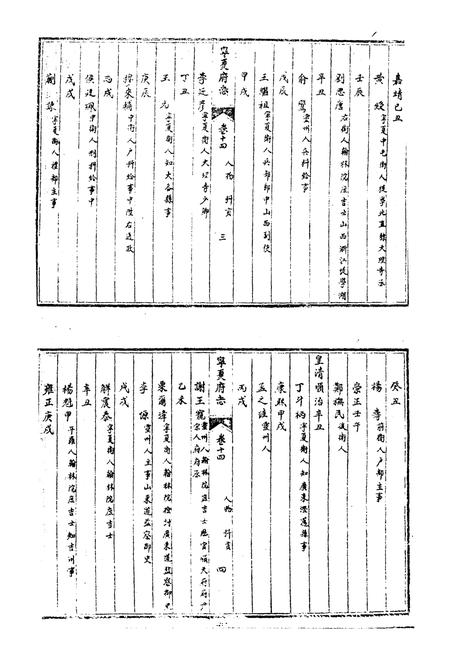 嘉靖己丑
黃綬寧夏中屯衛人
壬辰
劉思唐右衛人翰林院庶吉士山西浙江提學副
辛丑
俞鸞靈州人兵科給事
戊辰
王繼祖寧夏衛人兵部郎中山西副使
甲戌
寧夏府志 卷十四 人物 科貢 三
李廷彥寧夏衛人大理寺少卿
丁丑
王元寧夏衛人知大谷縣事
庚辰
穆來輔中衛人戶科給事中陞右通政
丙戌
侯廷珮中衛人刑科給事中
戊戌
寧夏衛人禮部主事
癸丑
楊壽前衛人戶部主事
崇正壬午
鄭撫民後衛人
皇清順治辛丑
丁斗柄寧夏衛人知廣東澄邁縣事
康熙甲戌
孟之珪靈州人
丙戌
寧夏府志 卷十四 人物 科貢 四
謝王寵靈州人翰林院庶吉士
宗人府府丞
乙未
栗爾璋寧夏衛人翰林院檢討廣東道監察御史
李 靈州人主事山東道監察御史
戊戌
解震泰寧夏衛人翰林院庶吉士
辛丑
楊魁甲平羅人翰林院庶吉士知吉州事
雍正庚戌